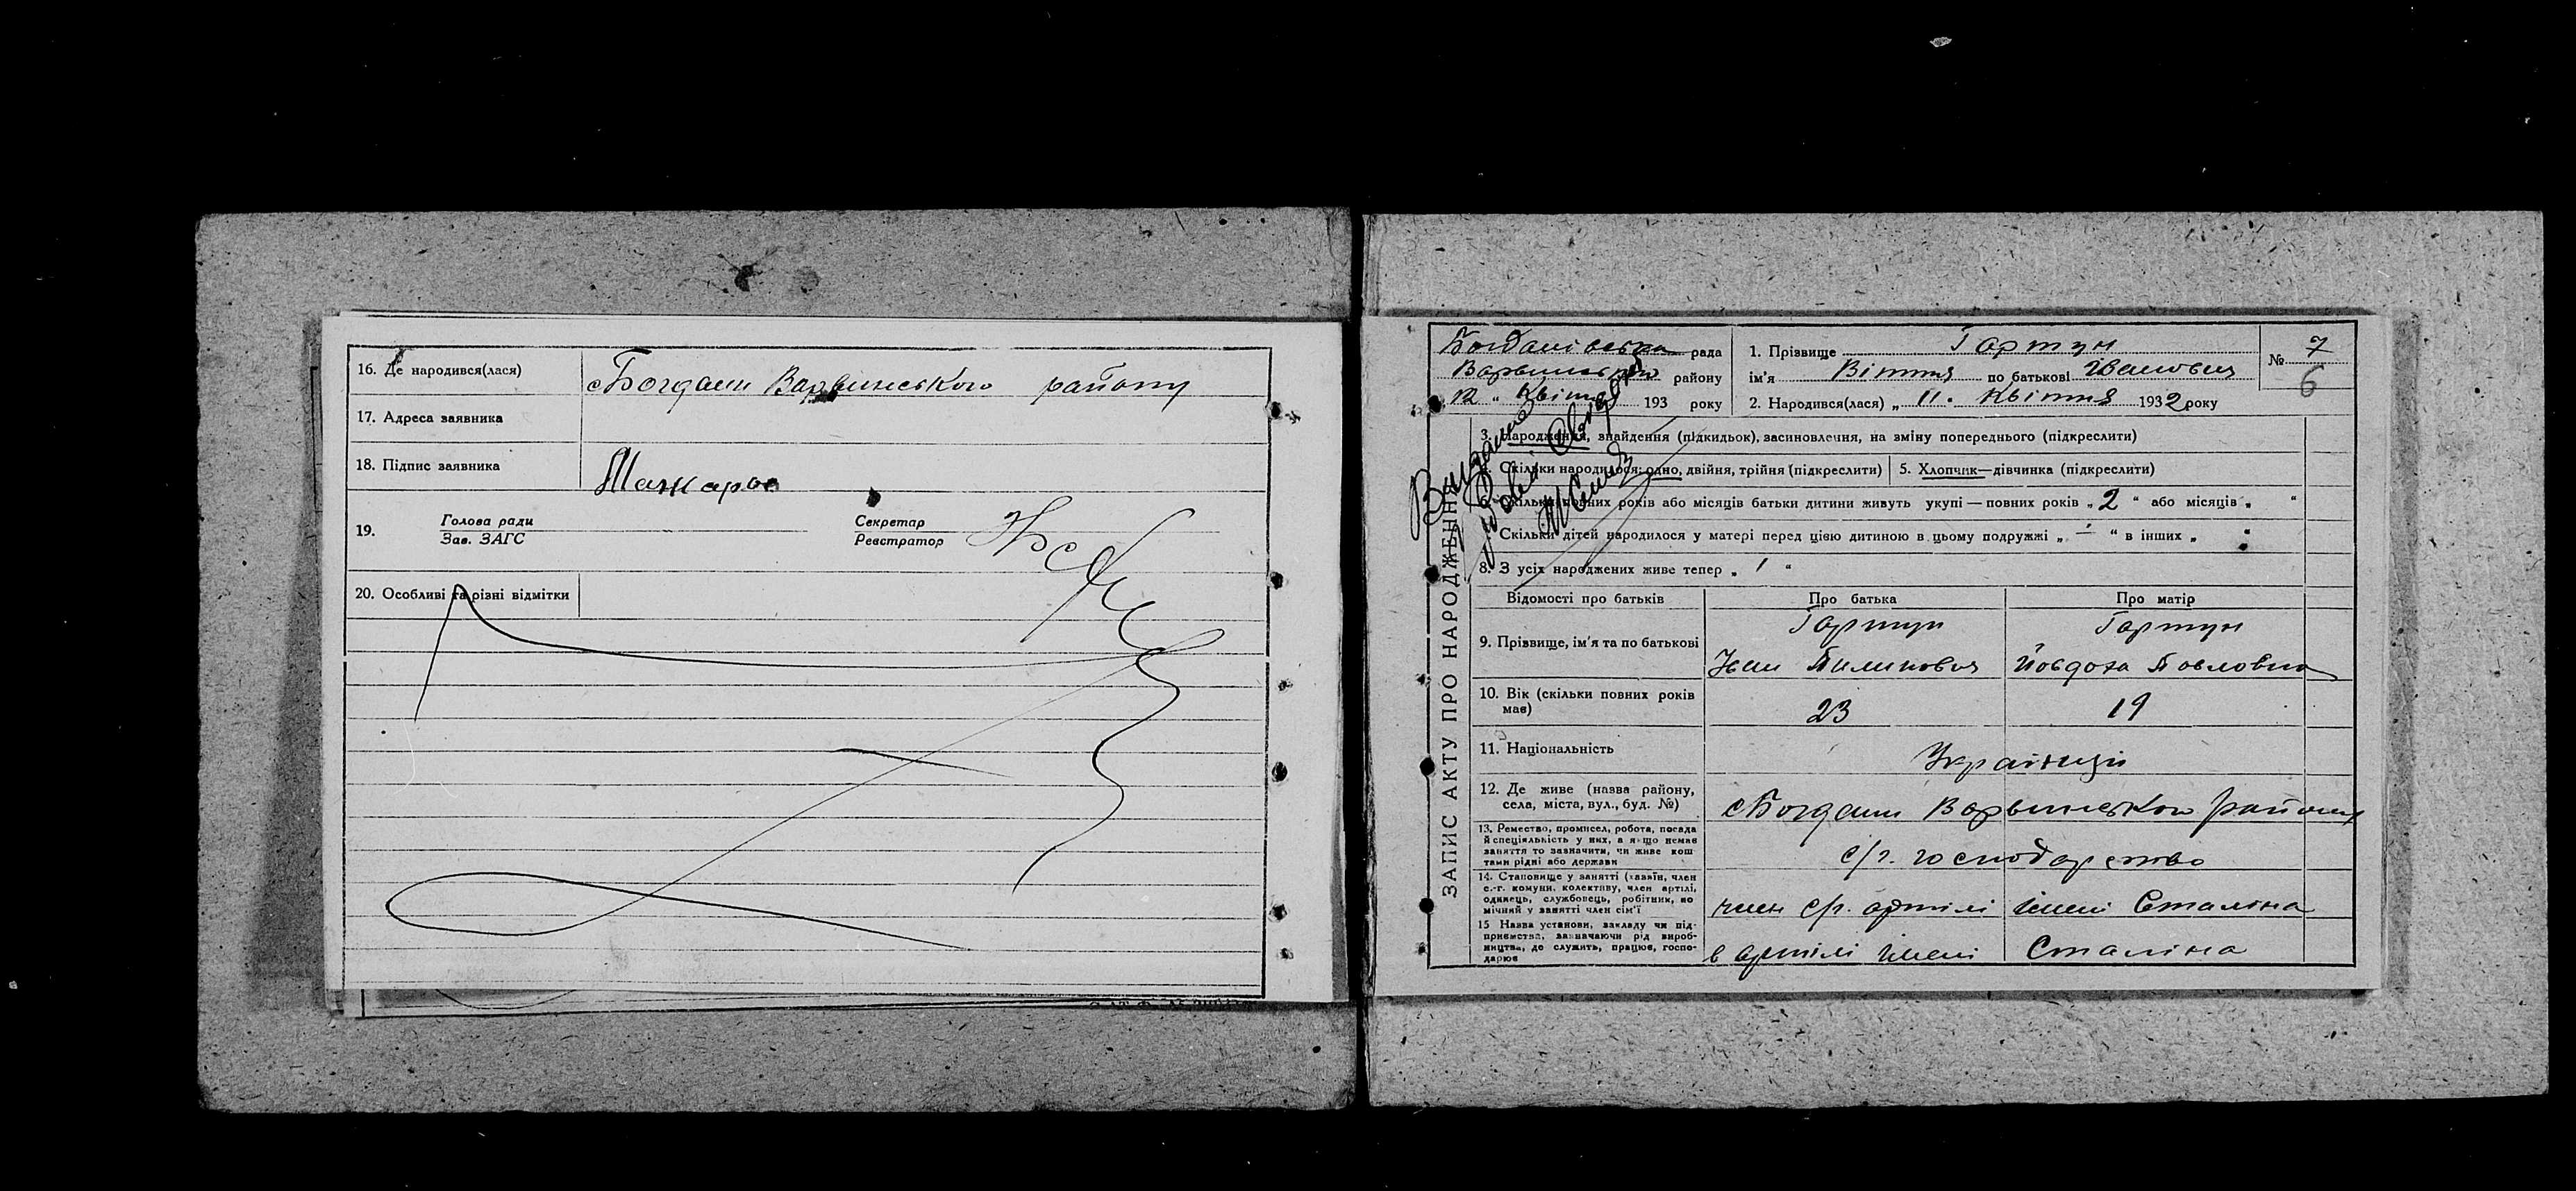 16. Де народився(лася) с Богдани Варвинського району
17. Адреса заявника
18. Підпис заявника
19. Голова ради
Зав. ЗАГС
Секретар
Реєстратор
20. Особливі та різні відмітки
Богданівська рада
Варвинського району
12 " Квітня 193 року
1. Прізвище Гартун
ім'я Вітття по батькові Іванович
2. Народився(лася) „ 11. Квітня 1932 року
№ 7
6
ЗАПИС АКТУ ПРО НАРОДЖЕННЯ
3. Народження, знайдення (підкидьок), засиновлення, на зміну попереднього (підкреслити)
4. Скільки народилося: одно, двійня, трійня (підкреслити) 5. Хлопчик—дівчинка (підкреслити)
6. Скільки повних років або місяців батьки дитини живуть укупі — повних років „ 2 " або місяців „ "
7. Скільки дітей народилося у матері перед цією дитиною в цьому подружжі „ — " в інших „ "
8. З усіх народжених живе тепер „ 1 "
Відомості про батьків Про батька Про матір
9. Прізвище, ім'я та по батькові
Гартун Гартун
Іван Пилипович Йовдоха Павловна
10. Вік (скільки повних років має) 23 19
11. Національність Українці
12. Де живе (назва району, села, міста, вул., буд. №) с Богдани Варвинського району
13. Ремество, промисел, робота, посада й спеціяльність у них, а якщо немає заняття то зазначити, чи живе коштами рідні або держави
с/г. господарство
14. Становище у занятті (хазяїн, член с.-г. комуни, колективу, член артілі, одинець, службовець, робітник, помічний у занятті член сім'ї
член с/г. артілі імені Сталіна
15 Назва установи, закладу чи підприємства, зазначаючи рід виробництва, де служить, працює, господарює
в артілі імені Сталіна